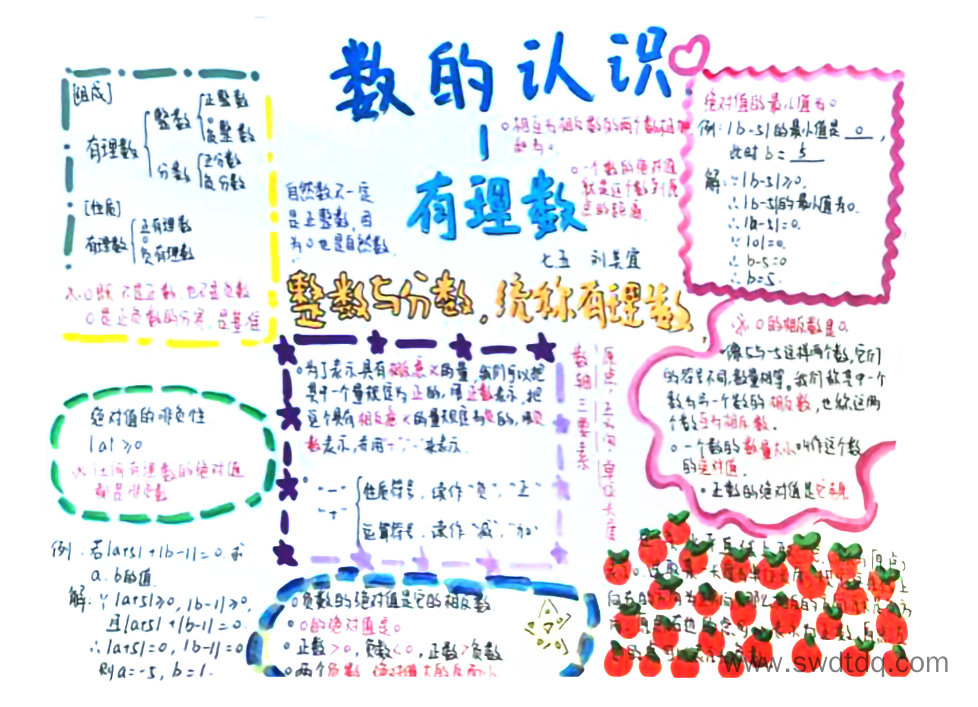 数的认识
有理数
七五 刘昊宜
整数与分数。统称有理数
[组成]
有理数
整数
正整数
0
负整数
分数
正分数
负分数
[性质]
有理数
正有理数
0
负有理数
※0既不是正数,也不是负数
0是正负数的分界,是基准
自然数不一定
是正整数,因
为0也是自然数
0相互为相反数的两个数相加
和为0.
0一个数的绝对值
就是这个数到原
点的距离.
绝对值的最小值为0
例:|b-5|的最小值是 0 ,
此时b= 5
解:∵|b-5|≥0.
∴|b-5|的最小值为0.
∴|b-5|=0.
∵|0|=0.
∴b-5=0
∴b=5.
※0的相反数是0.
像5与-5这样两个数,它们
的符号不同,数量相等。我们就其中一个
数为另一个数的相反数,也称这两
个数互为相反数.
0一个数的数量大小叫作这个数
的绝对值.
正数的绝对值是它本身
数轴三要素
原点,正方向,单位长度
0为了表示具有相反意义的量,我们可以把
其中一个量规定为正的,用正数表示,把
这个具有相反意义的量规定为负的,用负
数表示,常用“+”“-”来表示.
“-”
“+”
性质符号,读作“负”,“正”
运算符号,读作“减”,“加”
绝对值的非负性
|a|≥0
※任何有理数的绝对值
都是非负数
例:若|a+5|+|b-1|=0.求
a.b的值.
解:∵|a+5|≥0,|b-1|≥0,
且|a+5|+|b-1|=0.
∴|a+5|=0,|b-1|=0
则a=-5,b=1.
0负数的绝对值是它的相反数
0的绝对值是0
正数>0,负数<0,正数>负数
0两个负数,绝对值大的反而小
www.swdtdq.com